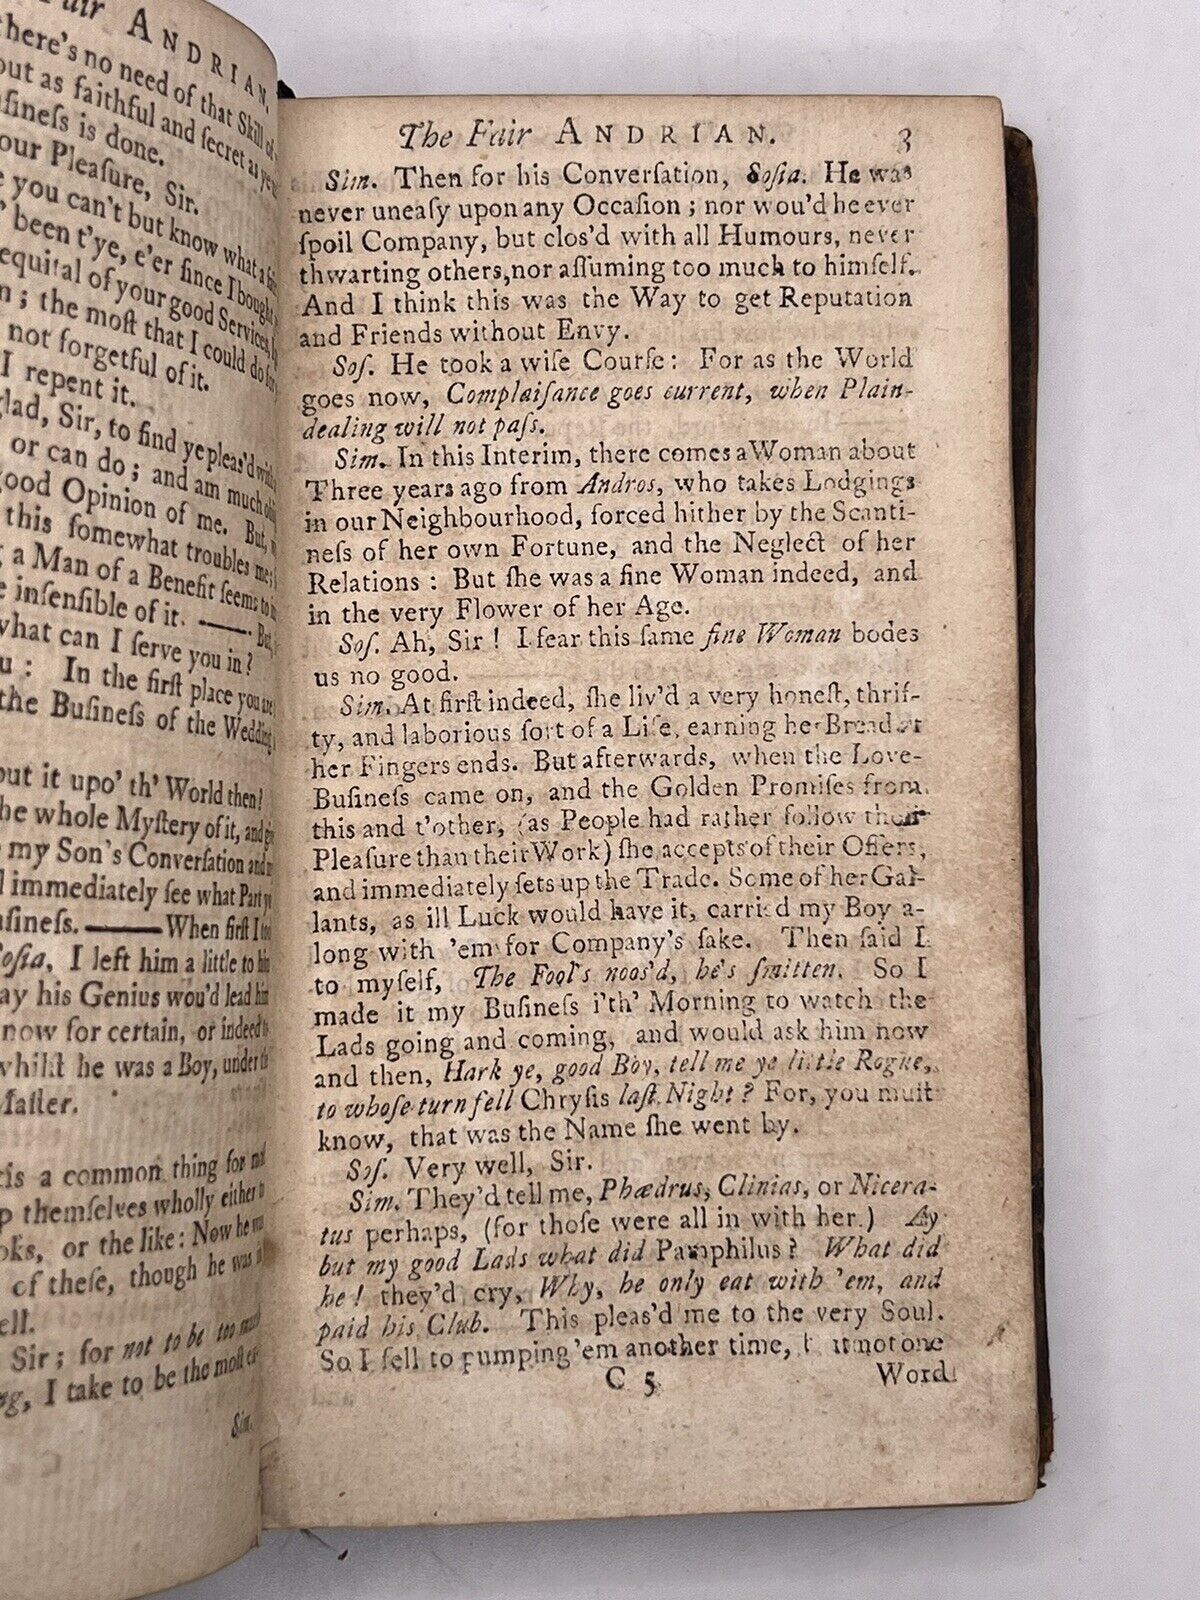 Fair ANDRIAN.
there's no need of that Skill of
but as faithful and secret as ye
uſineſs is done.
our Pleaſure, Sir.
you can't but know what a
been t'ye, e'er ſince I bought
equital of your good Services,
; the moſt that I could do
not forgetful of it.
I repent it.
glad, Sir, to find ye pleas'd with
or can do; and am much
good Opinion of me. But,
this ſomewhat troubles me;
a Man of a Benefit ſeems to
inſenſible of it. —— But,
what can I ſerve you in?
u: In the firſt place you are
the Buſineſs of the Wedding
put it upo' th' World then?
he whole Myſtery of it, and
my Son's Converſation and
immediately ſee what Part
uſineſs. —— When firſt I
Soſia, I left him a little to
ay his Genius wou'd lead him
now for certain, or indeed
whilſt he was a Boy, under
Maſter.
is a common thing for
p themſelves wholly either
oks, or the like: Now he was
of theſe, though he was
ell.
Sir; for not to be too much
I take to be the moſt
Sim.
The Fair ANDRIAN. 3
Sim. Then for his Converſation, Soſia. He was
never uneaſy upon any Occaſion; nor wou'd he ever
ſpoil Company, but clos'd with all Humours, never
thwarting others, nor aſſuming too much to himſelf.
And I think this was the Way to get Reputation
and Friends without Envy.
Soſ. He took a wiſe Courſe: For as the World
goes now, Complaiſance goes current, when Plain-
dealing will not paſs.
Sim. In this Interim, there comes a Woman about
Three years ago from Andros, who takes Lodgings
in our Neighbourhood, forced hither by the Scanti-
neſs of her own Fortune, and the Neglect of her
Relations: But ſhe was a fine Woman indeed, and
in the very Flower of her Age.
Soſ. Ah, Sir! I fear this ſame fine Woman bodes
us no good.
Sim. At firſt indeed, ſhe liv'd a very honeſt, thrif-
ty, and laborious ſort of a Life, earning her Bread at
her Fingers ends. But afterwards, when the Love-
Buſineſs came on, and the Golden Promiſes from
this and t'other, (as People had rather follow their
Pleaſure than their Work) ſhe accepts of their Offers,
and immediately ſets up the Trade. Some of her Gal-
lants, as ill Luck would have it, carried my Boy a-
long with 'em for Company's ſake. Then ſaid I
to myſelf, The Fool's noos'd, he's ſmitten. So I
made it my Buſineſs i'th' Morning to watch the
Lads going and coming, and would ask him now
and then, Hark ye, good Boy, tell me ye little Rogue,
to whoſe turn fell Chryſis laſt Night? For, you muſt
know, that was the Name ſhe went by.
Soſ. Very well, Sir.
Sim. They'd tell me, Phædrus, Clinias, or Nicera-
tus perhaps, (for thoſe were all in with her.) Ay
but my good Lads what did Pamphilus? What did
he! they'd cry, Why, he only eat with 'em, and
paid his Club. This pleas'd me to the very Soul.
So I fell to pumping 'em another time, but not one
C 5 Word